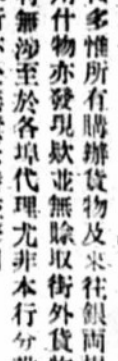 多惟所有購辦貨物及來往銀兩
什物亦發現欵並無賒取街外貨物
有無涉至於各埠代理尤非本行分